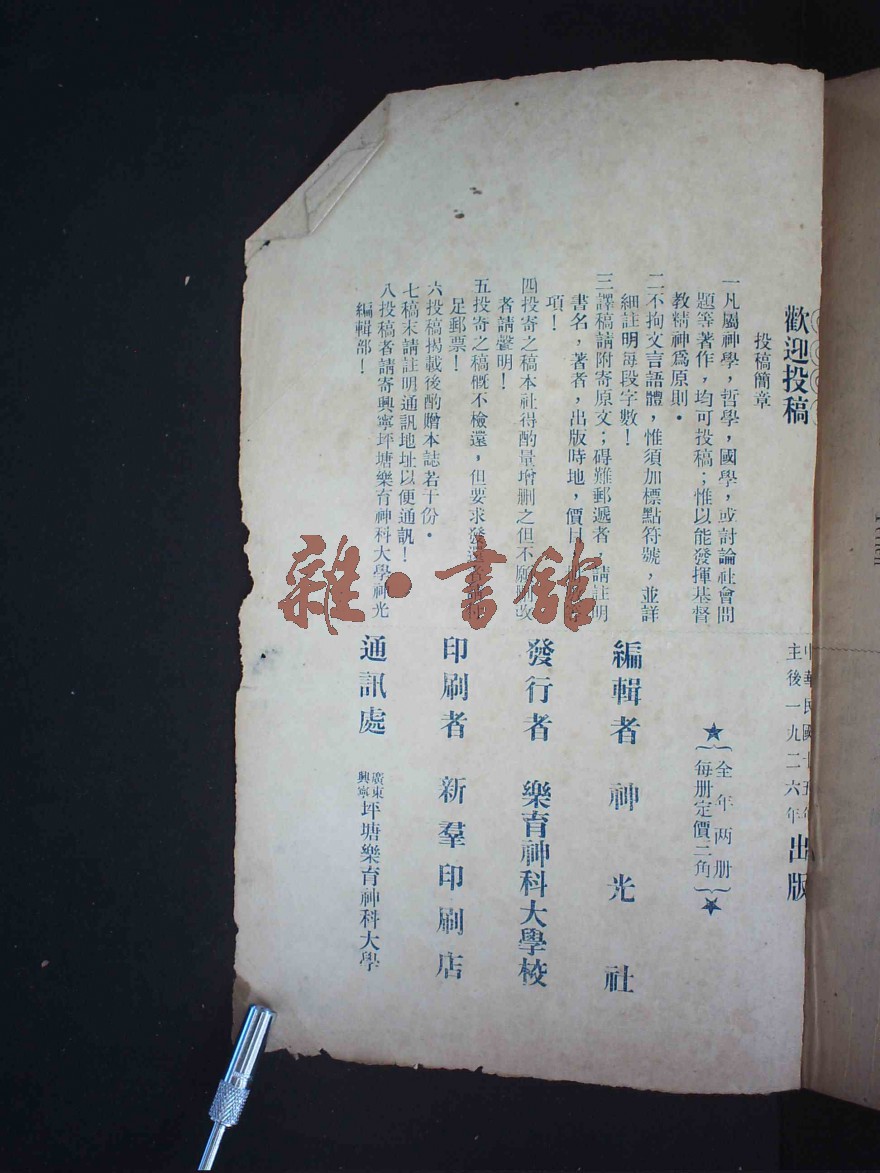 歡迎投稿
投稿簡章
一凡屬神學，哲學，國學，或討論社會問
題等著作，均可投稿；惟以能發揮基督
教精神爲原則。
二不拘文言語體，惟須加標點符號，並詳
細註明每段字數！
三譯稿請附寄原文；碍難郵遞者，請註明
書名，著者，出版時地，價目
項！
四投寄之稿本社得酌量增删之但不願 改
者請聲明！
五投寄之稿概不檢還，但要求發還者
足郵票！
六投稿揭載後酌贈本誌若干份。
七稿末請註明通訊地址以便通訊！
八投稿者請寄興寧坪塘樂育神科大學神光
編輯部！
中華民國十五年
主後一九二六年
出版
全年两册
每册定價三角
編輯者 神光社
發行者 樂育神科大學校
印刷者 新羣印刷店
通訊處 廣東興寧坪塘樂育神科大學
雜·書館